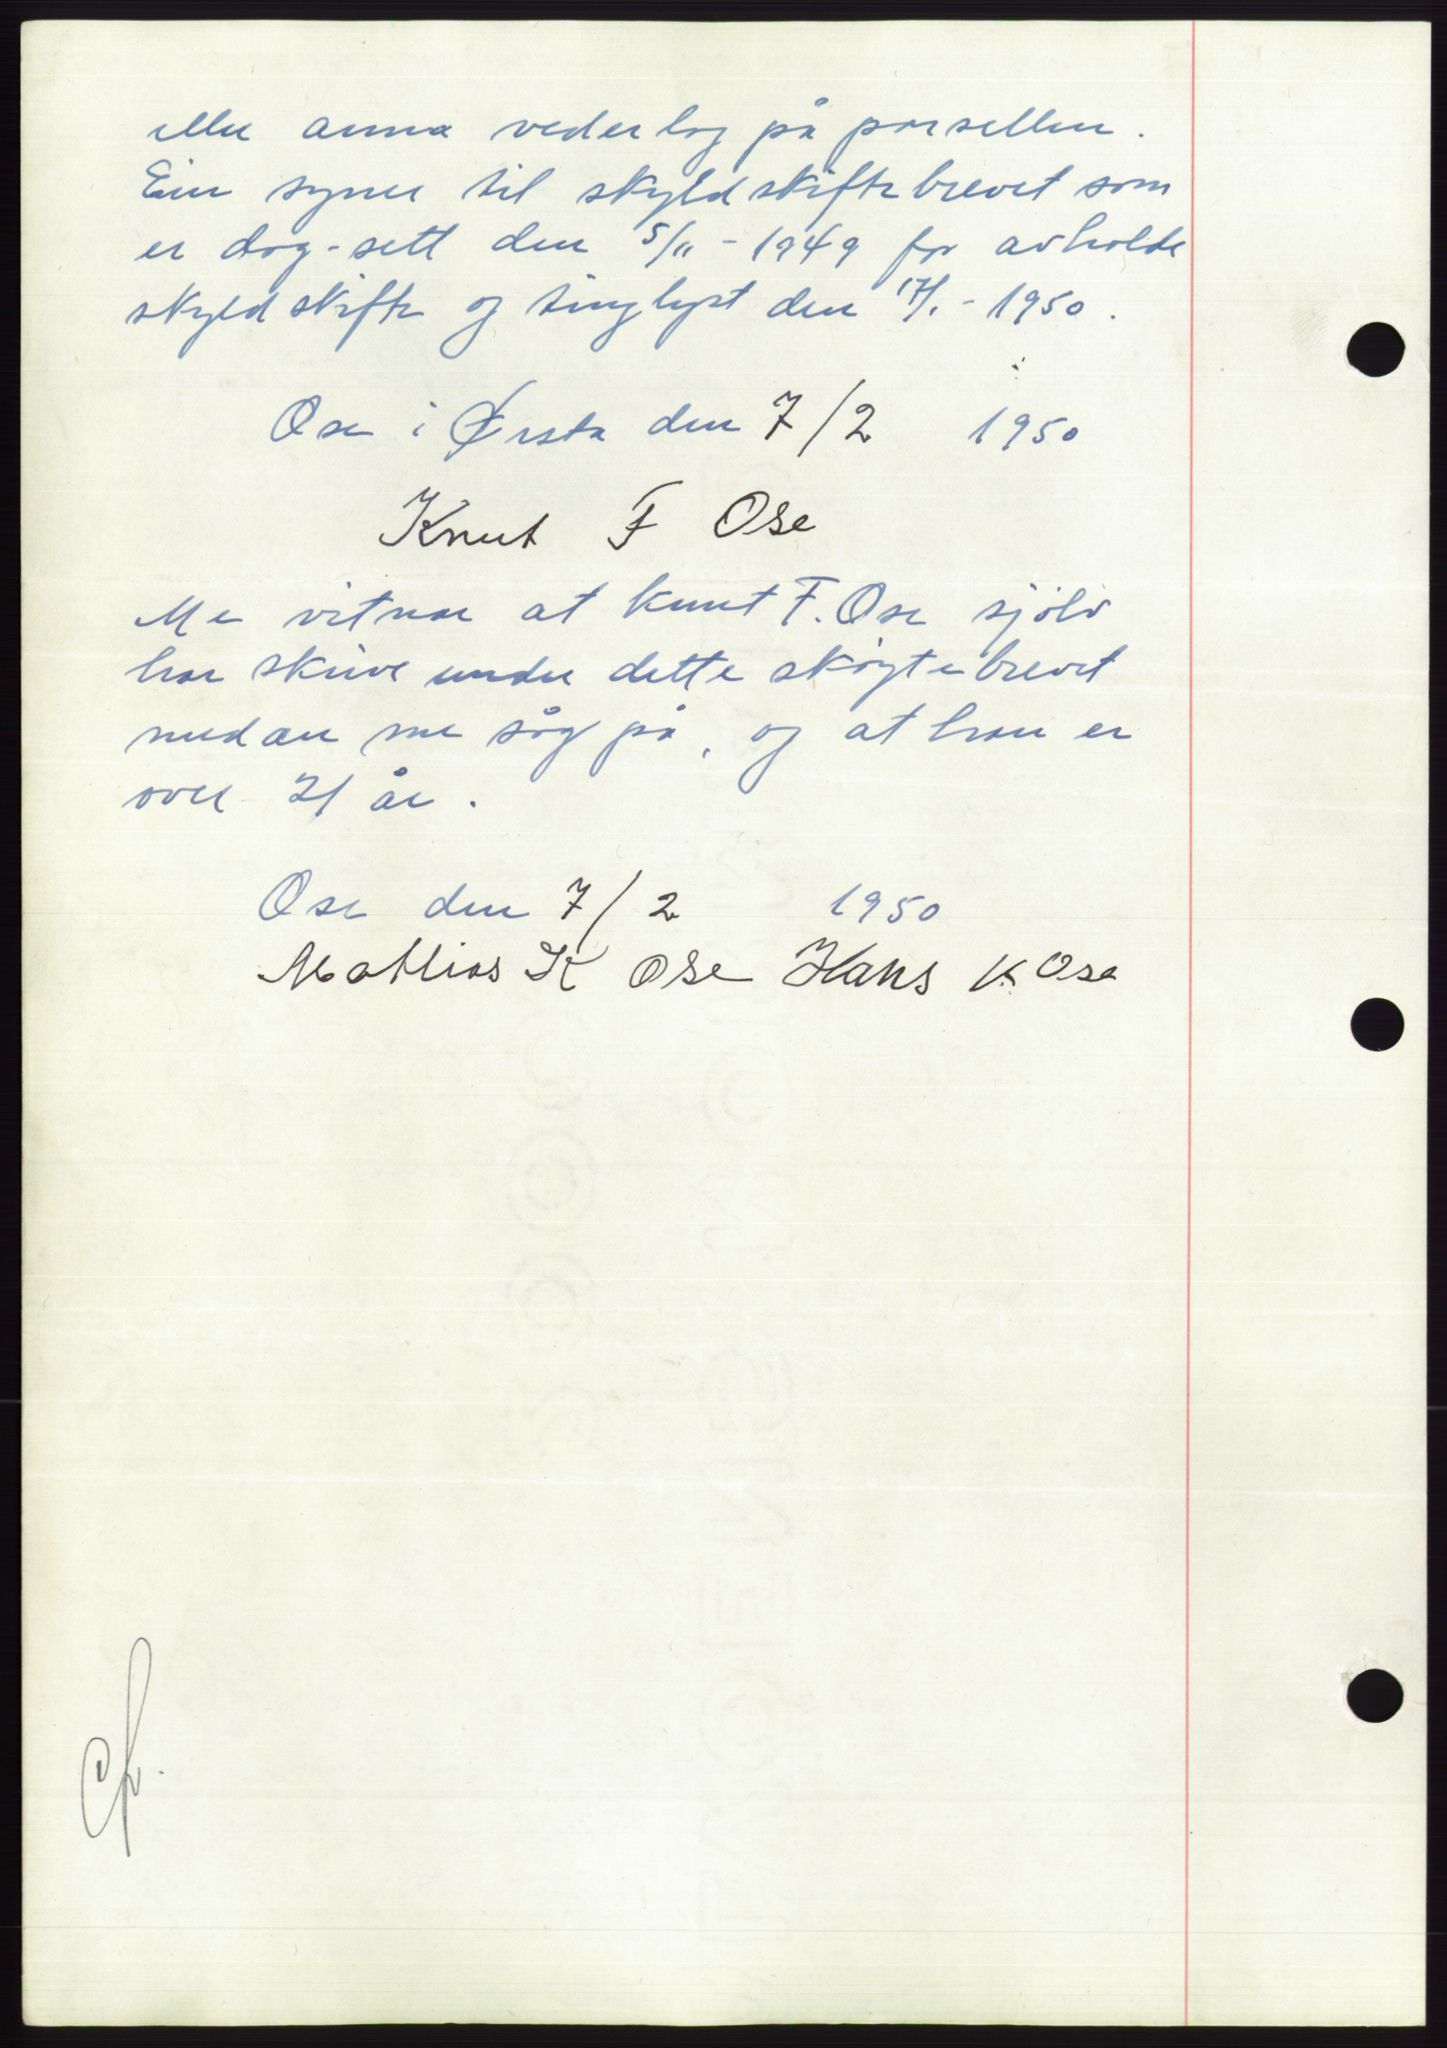 eller anna vederlag på parsellen.
Ein syner til skyldskiftebrevet som
er dag-sett den 5/11 - 1949 for avholde
skyldskifte og tinglyst den 17/1 - 1950.
Ose i Ørsta den 7/2 1950
Knut F Ose
Me vitnar at Knut F. Ose sjölv
har skrive under dette skøytebrevet
medan me såg på, og at han er
over 21 år.
Ose den 7/2 1950
Mathias K Ose Hans K Ose